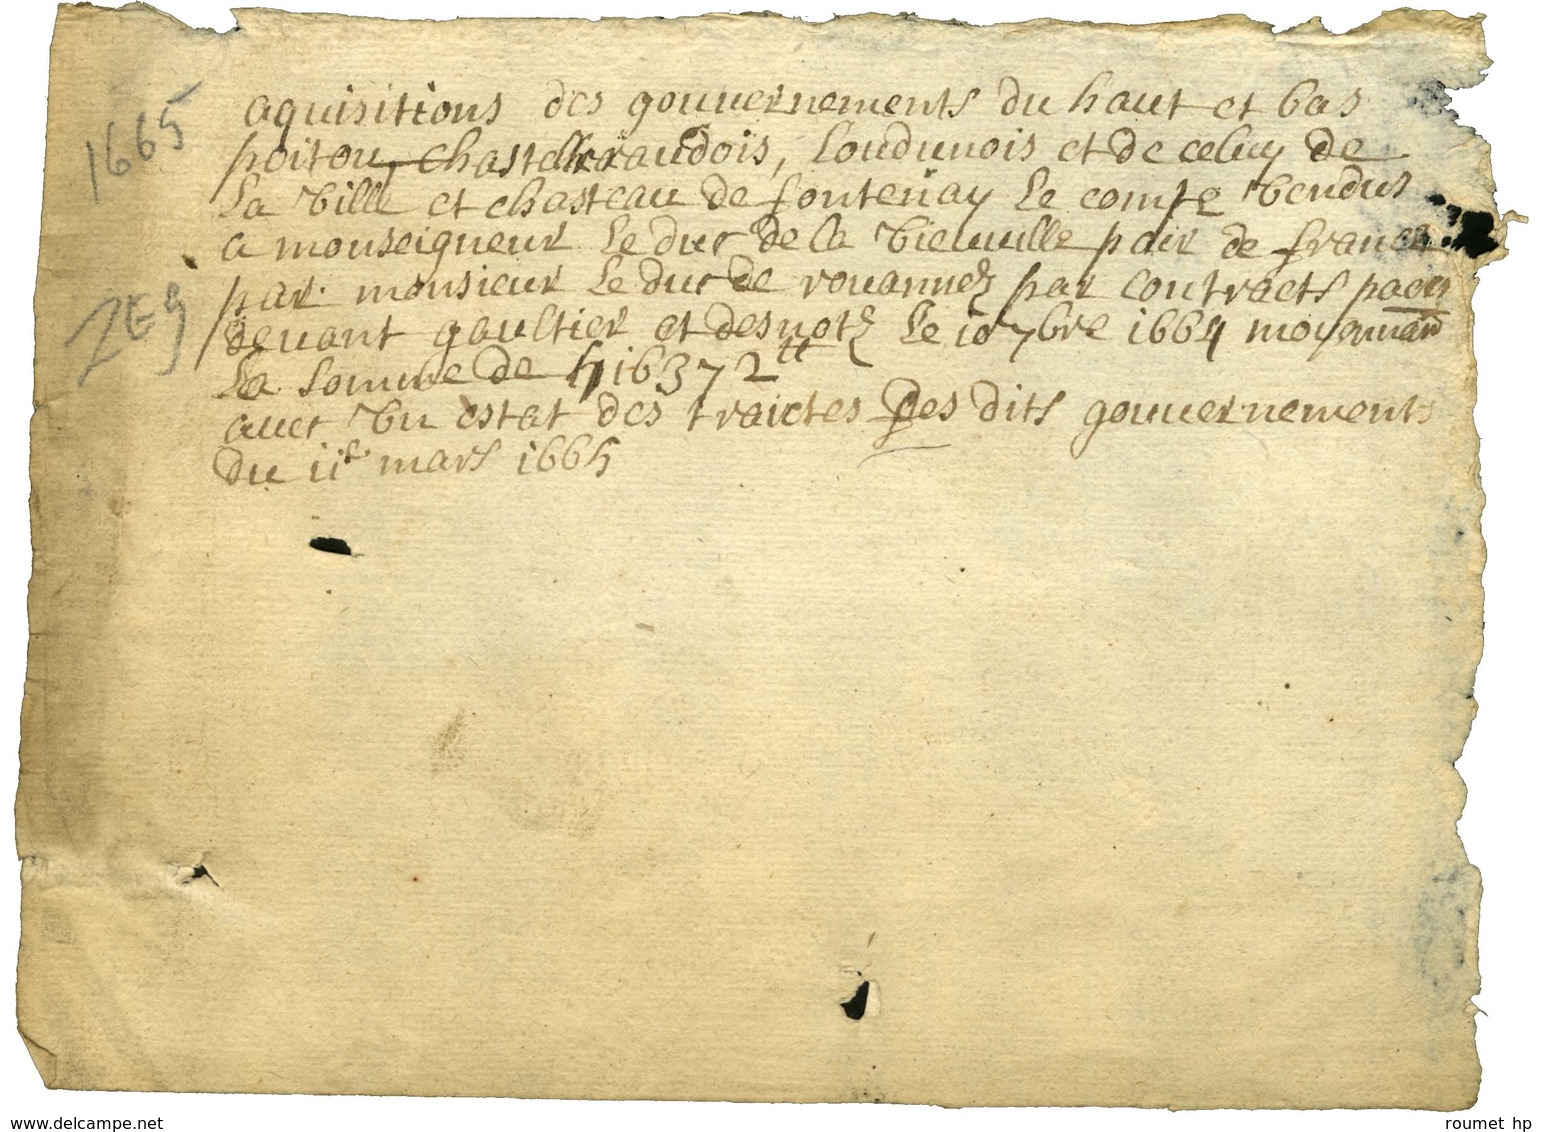 1665
aquisitions des gouuernements du haut et bas
poitou, chastelleraudois, Loudunois et de celuy de
La Ville et chasteau de fontenay Le comte Vendus
a monseigneur Le duc de la Vieuuille pair de france
par monsieur Le duc de rouannez par contracts passé
deuant gaultier et desnotz Le 10 7bre 1664 moyennant
La somme de 516372tt
auec Vn estat des traictes des dits gouuernements
du 11e mars 1665
www.delcampe.net
roumet hp